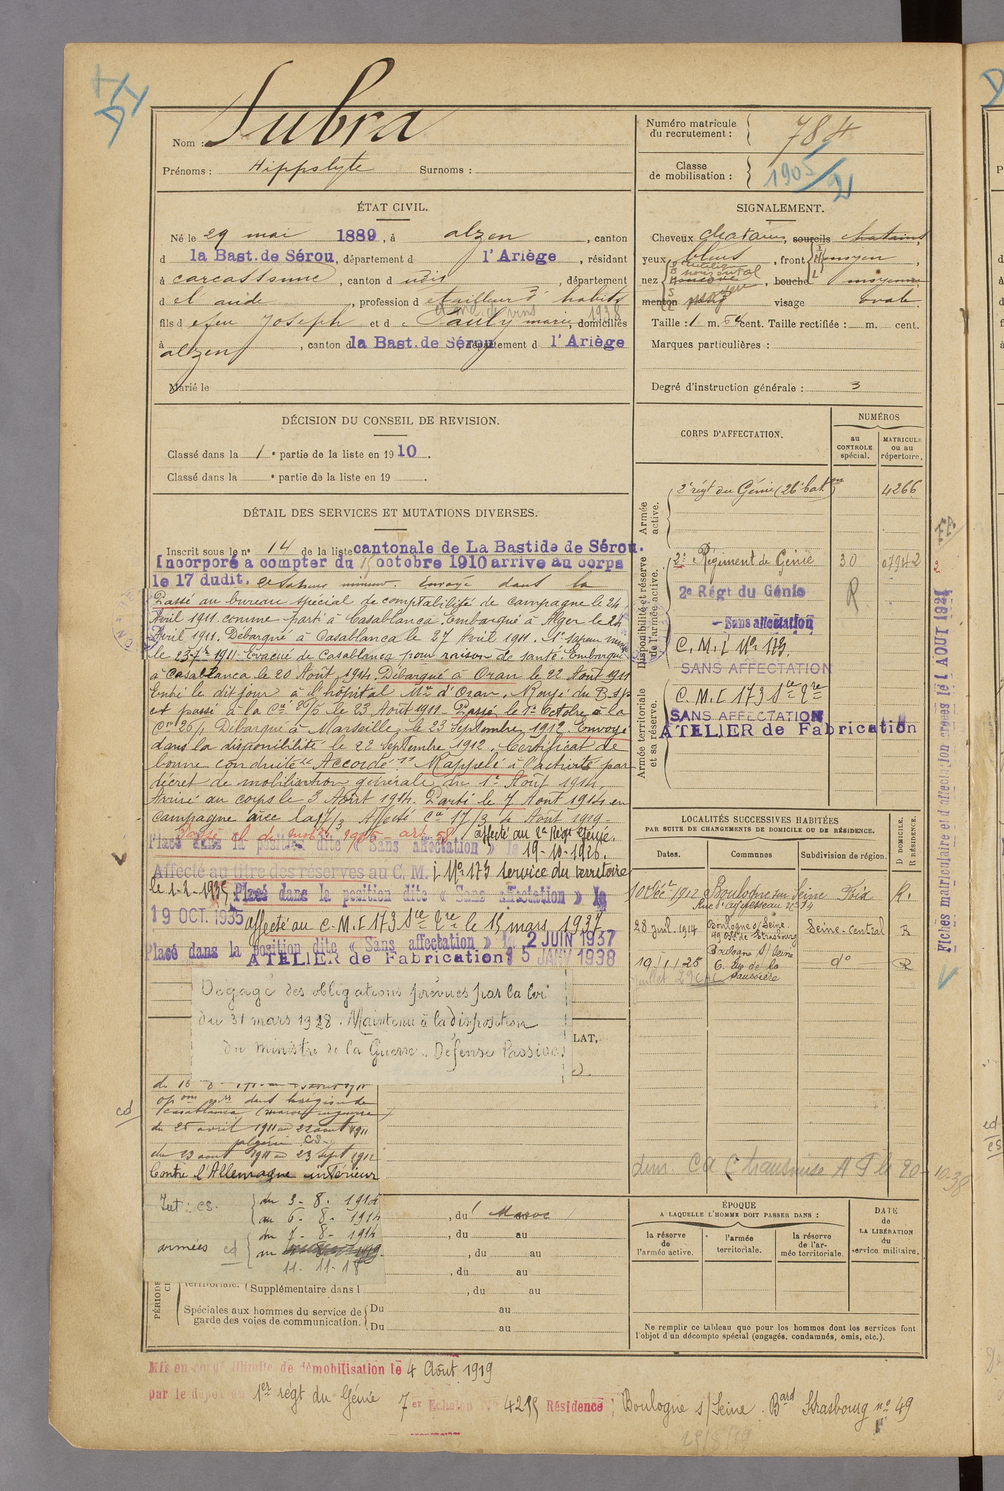 Nom : Subra
Prénoms : Hippolyte Surnoms :
Numéro matricule du recrutement : 784
Classe de mobilisation : 1905/2
ÉTAT CIVIL.
Né le 29 mai 1889, à alzen, canton
d la Bast. de Sérou, département d l'Ariège, résidant
à carcassonne, canton d udis, département
d et aude, profession d e tailleur d' habits
1938
fils d e feu Joseph et d e Pauly marie, domiciliés
à alzen, canton d la Bast. de Sérou, département d l'Ariège
Marié le
SIGNALEMENT.
Cheveux chatain, sourcils chatains
yeux bleus, front moyen
nez, bouche moyenne
menton visage ovale
Taille : 1 m. 54 cent. Taille rectifiée : m. cent.
Marques particulières :
Degré d'instruction générale : 3
DÉCISION DU CONSEIL DE REVISION.
Classé dans la 1e partie de la liste en 1910.
Classé dans la e partie de la liste en 19 .
DÉTAIL DES SERVICES ET MUTATIONS DIVERSES.
Inscrit sous le n° 14 de la liste cantonale de La Bastide de Sérou.
Incorporé a compter du octobre 1910 arrive au corps
le 17 dudit, et Sapeur mineur. Envoyé dans la
Passé au bureau spécial de comptabilité de campagne le 24
Avril 1911 comme parti à Casablanca. Embarqué à Alger le 24
Avril 1911. Débarqué à Casablanca le 27 Avril 1911. 1er sapeur mineur
le 23 1911. Evacué de Casablanca pour raison de santé. Embarqué
à Casablanca le 20 Aout 1911. Débarqué à Oran le 22 Aout 1911
Entré le dit jour à l'hôpital Mre d'Oran. Rayé du B.S.
et passé à la Cie 26/5 le 23 Aout 1911. Passé le 1er Octobre à la
Cie 26/1. Débarqué à Marseille le 23 Septembre 1912. Envoyé
dans la disponibilité le 22 Septembre 1912. Certificat de
bonne conduite "Accordé". Rappelé à l'activité par
décret de mobilisation générale du 1er Août 1914.
Arrivé au corps le 3 Août 1914. Parti le 7 Aout 1914 en
campagne avec la 17/3 Affecté Cie 17/3 4 Aout 1919.
Classe de mobon 1905 - art 58, affecté au 2e Régt Génie.
Placé dans la position dite « Sans affectation » le 19-10-1926.
Affecté au titre des réserves au C. M. I No 173 service du territoire
le 1-2-1935, Placé dans la position dite « Sans affectation » le
19 OCT. 1935 affecté au C.M.I 173 le 15 mars 1937
Placé dans la position dite « Sans affectation » le 2 JUIN 1937
ATELIER de Fabrication 15 JANV 1938
Dégagé des obligations prévues par la loi
du 31 mars 1928. Maintenu à la disposition
du ministre de la Guerre. Défense Passive.
LAT,
opons dans la region de
Casablanca (maroc) en guerre
du 25 avril 1911 au 22 aout 1911
algérie CS
du 23 aout 1911 au 23 sept 1912
Contre l'Allemagne intérieur
Int : CS. du 3 - 8 - 1914
au 6 - 8 - 1914
armées cd du 7 - 8 - 1914
au 11 - 11 - 18
, du Maroc
, du au
, du au
, du au
territoriale. Supplémentaire dans l , du au
Spéciales aux hommes du service de garde des voies de communication. Du au
Du au
CORPS D'AFFECTATION.
NUMÉROS
au CONTROLE spécial.
MATRICULE ou au répertoire.
Armée active.
2e régt du Génie (26e baton) 4266
Disponibilité et réserve de l'armée active.
2e Régiment de Génie 30 07942
2e Régt du Génie R
Sans affectation
C. M. I No 173
SANS AFFECTATION
Armée territoriale et sa réserve.
C. M. I 173
SANS AFFECTATION
ATELIER de Fabrication
LOCALITÉS SUCCESSIVES HABITÉES
PAR SUITE DE CHANGEMENTS DE DOMICILE OU DE RÉSIDENCE.
Dates. Communes Subdivision de région. D DOMICILE. R RÉSIDENCE.
10 Octbre 1912 Boulogne sur Seine Foix R.
28 juil. 1914 Boulogne s/Seine Seine-Central R
49 Bd de Strasbourg
19/1/28 Boulogne s/ Seine do R
6. de la
ÉPOQUE
A LAQUELLE L'HOMME DOIT PASSER DANS :
la réserve de l'armée active.
l'armée territoriale.
la réserve de l'armée territoriale.
DATE de LA LIBÉRATION du service militaire.
Ne remplir ce tableau que pour les hommes dont les services font
l'objet d'un décompte spécial (engagés, condamnés, omis, etc.).
Fiches matriculaire et d'affectation créées le 1 AOUT 1921
Mis en congé illimité de démobilisation le 4 Août 1919
par le dépôt du 1er régt du Génie 7er Echelon No 4215 Résidence : Boulogne s/Seine. Bard Strasbourg no 49